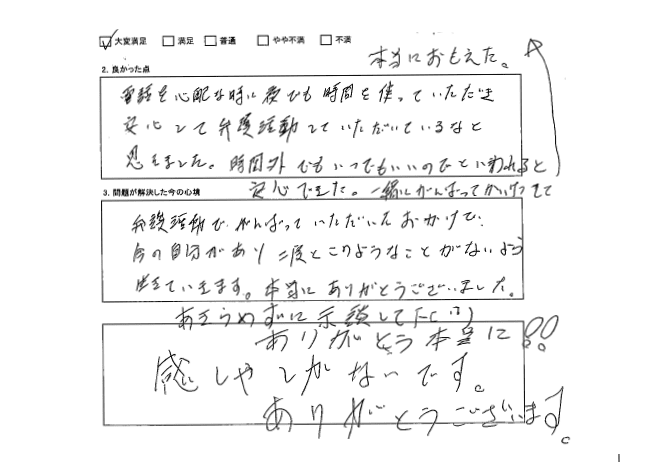 ☑ 大変満足 □ 満足 □ 普通 □ やや不満 □ 不満
本当におもえた。
2. 良かった点
電話を心配な時に夜でも時間を使っていただき
安心して弁護活動していただいているなと
思えました。時間外でもいつでもいいのでといわれると
安心できた。一緒にがんばって
3. 問題が解決した今の心境
弁護活動で、がんばっていただいたおかげで、
今の自分があり二度とこのようなことがないよう
生きていきます。本当にありがとうございました。
あきらめずに示談して下
ありがとう本当に!!
感しゃしかないです。
ありがとうございます。